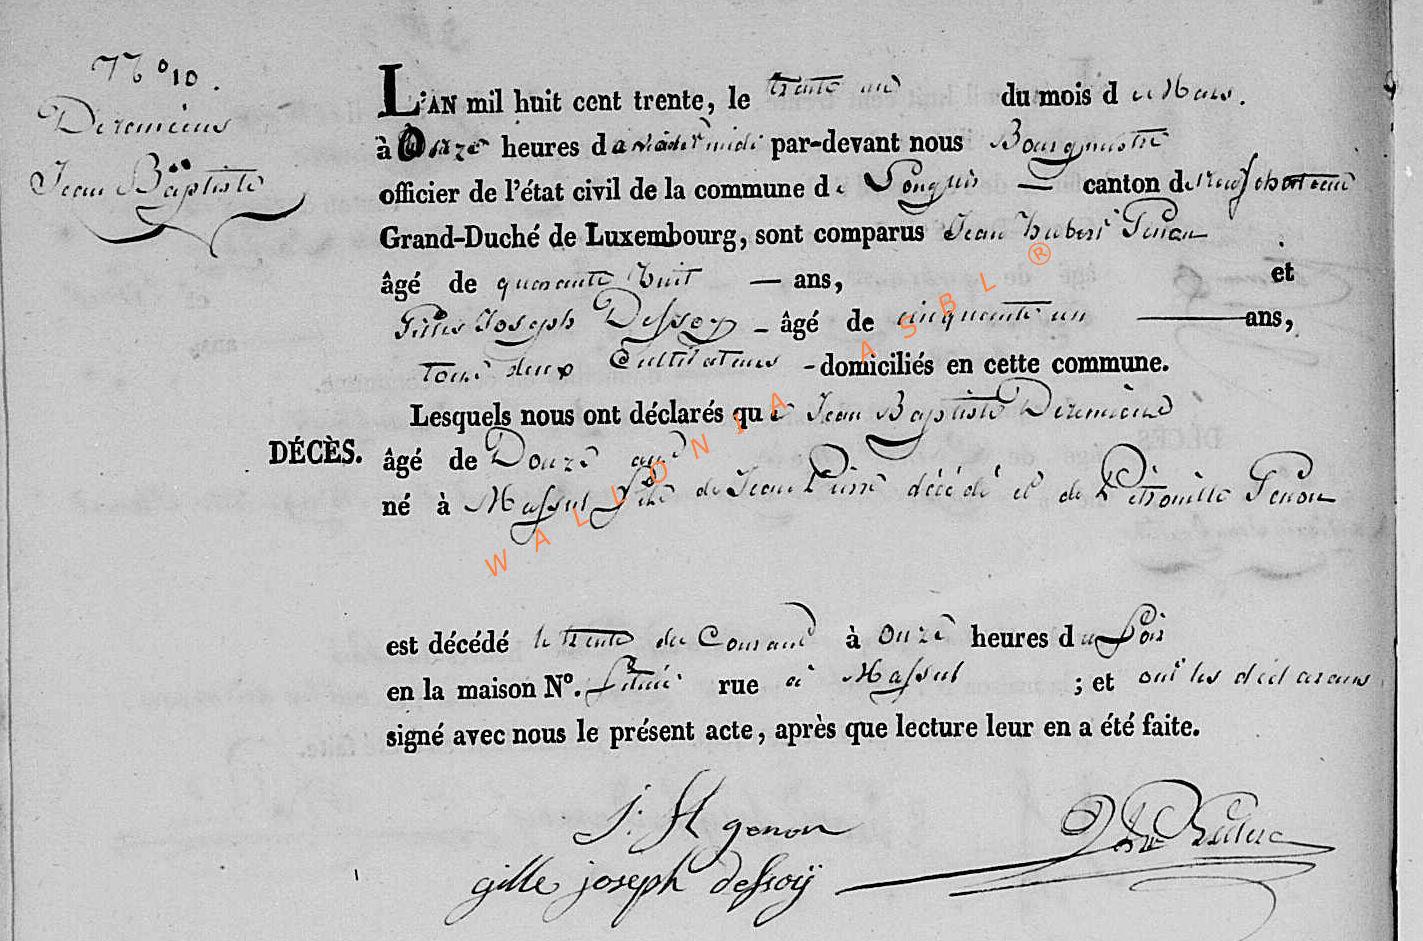 N° 10.
Deremiens
Jean Baptiste
L'AN mil huit cent trente, le trente un du mois de Mars.
à Onze heures d midi par-devant nous Bourgmestre
officier de l'état civil de la commune de Longlier canton de neufchateau
Grand-Duché de Luxembourg, sont comparus Jean hubert Genon
âgé de quarante huit — ans, et
Gilles Joseph Dessoy - âgé de cinquante un — ans,
tous deux Cultivateurs - domiciliés en cette commune.
Lesquels nous ont déclarés que Jean Baptiste Deremiens
DÉCÈS. âgé de Douze ans
né à Massul fils de Jean Pierre décédé et de Pétronille Genon
est décédé le trente du Courant à onze heures du Soir
en la maison N°. Située rue à Massul ; et ont les déclarans
signé avec nous le présent acte, après que lecture leur en a été faite.
J. H genon
gille joseph dessoÿ
WALLONIA ASBL ®